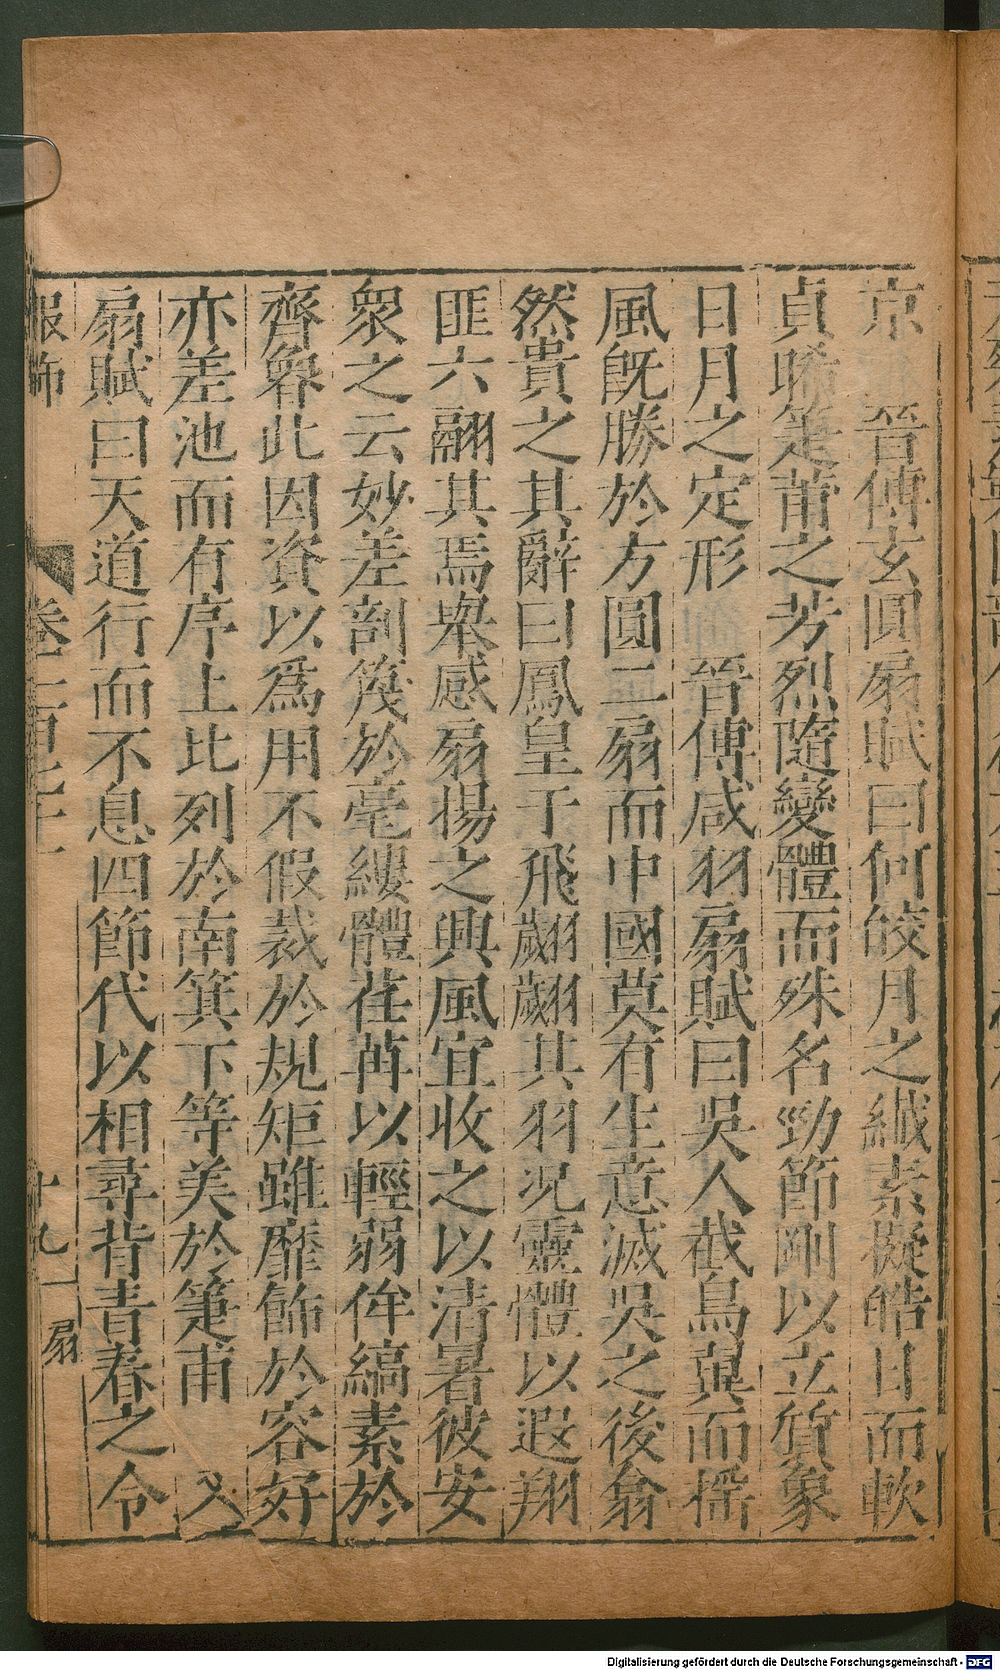 京　晉傅玄圓扇賦曰何皎月之纖素擬皓日而軟
貞睎箑莆之芳烈隨變體而殊名勁節剛以立質象
日月之定形　晉傅咸羽扇賦曰吳人截鳥翼而搖
風旣勝於方圓二扇而中國莫有生意滅吳之後翕
然貴之其辭曰鳳皇于飛翽翽其羽況靈體以遐翔
匪六翮其焉舉感扇揚之興風宜收之以清暑彼安
衆之云妙差剖篾於毫縷體荏苒以輕弱侔縞素於
齊魯此因資以爲用不假裁於規矩雖靡飾於容好
亦差池而有序上比列於南箕下等美於箑甫　又
扇賦曰天道行而不息四節代以相尋背青春之令
服飾
十九
扇
Digitalisierung gefördert durch die Deutsche Forschungsgemeinschaft - DFG